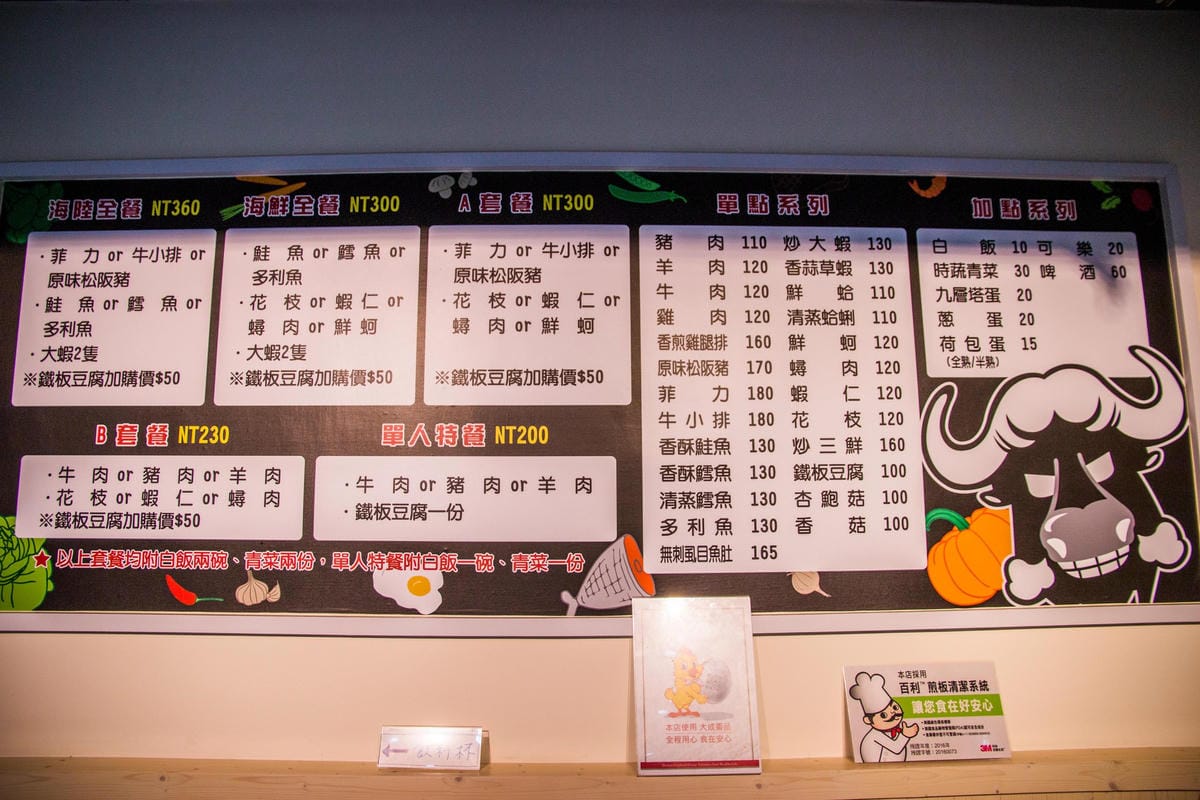 海陸全餐 NT360
・菲 力 or 牛小排 or
原味松阪豬
・鮭 魚 or 鱈 魚 or
多利魚
・大蝦2隻
※鐵板豆腐加購價$50
海鮮全餐 NT300
・鮭 魚 or 鱈魚 or
多利魚
・花 枝 or 蝦仁 or
蟳 肉 or 鮮蚵
・大蝦2隻
※鐵板豆腐加購價$50
A 套餐 NT300
・菲 力 or 牛小排 or
原味松阪豬
・花 枝 or 蝦 仁 or
蟳 肉 or 鮮 蚵
※鐵板豆腐加購價$50
B 套餐 NT230
・牛 肉 or 豬 肉 or 羊 肉
・花 枝 or 蝦 仁 or 蟳 肉
※鐵板豆腐加購價$50
單人特餐 NT200
・牛 肉 or 豬 肉 or 羊 肉
・鐵板豆腐一份
★以上套餐均附白飯兩碗、青菜兩份，單人特餐附白飯一碗、青菜一份
單點系列
豬 肉 110 炒大蝦 130
羊 肉 120 香蒜草蝦 130
牛 肉 120 鮮 蛤 110
雞 肉 120 清蒸蛤蜊 110
香煎雞腿排 160 鮮 蚵 120
原味松阪豬 170 蟳 肉 120
菲 力 180 蝦 仁 120
牛小排 180 花 枝 120
香酥鮭魚 130 炒三鮮 160
香酥鱈魚 130 鐵板豆腐 100
清蒸鱈魚 130 杏鮑菇 100
多利魚 130 香 菇 100
無刺虱目魚肚 165
加點系列
白 飯 10 可 樂 20
時蔬青菜 30 啤 酒 60
九層塔蛋 20
蔥 蛋 20
荷包蛋 15
(全熟/半熟)
← 飲料杯
本店使用 大成蛋品
全程用心 食在安心
本店採用
百利™ 煎板清潔系統
讓您食在好安心
授證年度：2016年
授證字號：20160073
3M